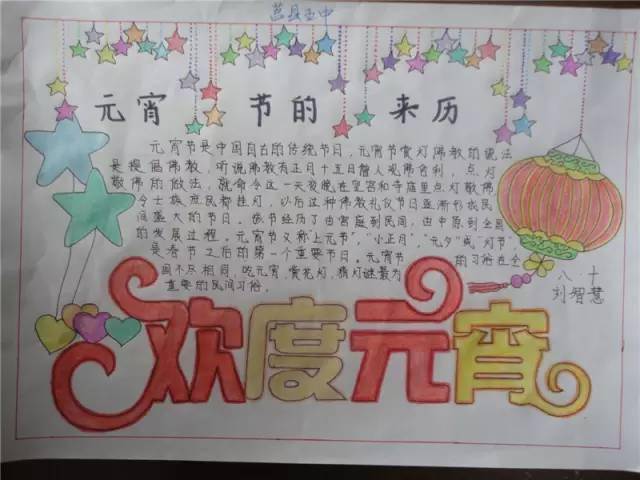 莒县五中
元宵 节的 来历
元宵节是中国自古的传统节日,元宵节赏灯佛教的说法
是提倡佛教,听说佛教有正月十五日僧人观佛舍利,点灯
敬佛的做法,就命令这一天夜晚在皇宫和寺庙里点灯敬佛
令士族庶民都挂灯,以后这种佛教礼仪节日逐渐形成民
间盛大的节日。该节经历了由宫庭到民间,由中原到全国
的发展过程。元宵节又称"上元节","小正月","元夕"或"灯节",
是春节之后的第一个重要节日。元宵节 的习俗在全
国不尽相同,吃元宵,赏花灯,猜灯谜最为
重要的民间习俗。
八、十
刘智慧
欢度元宵